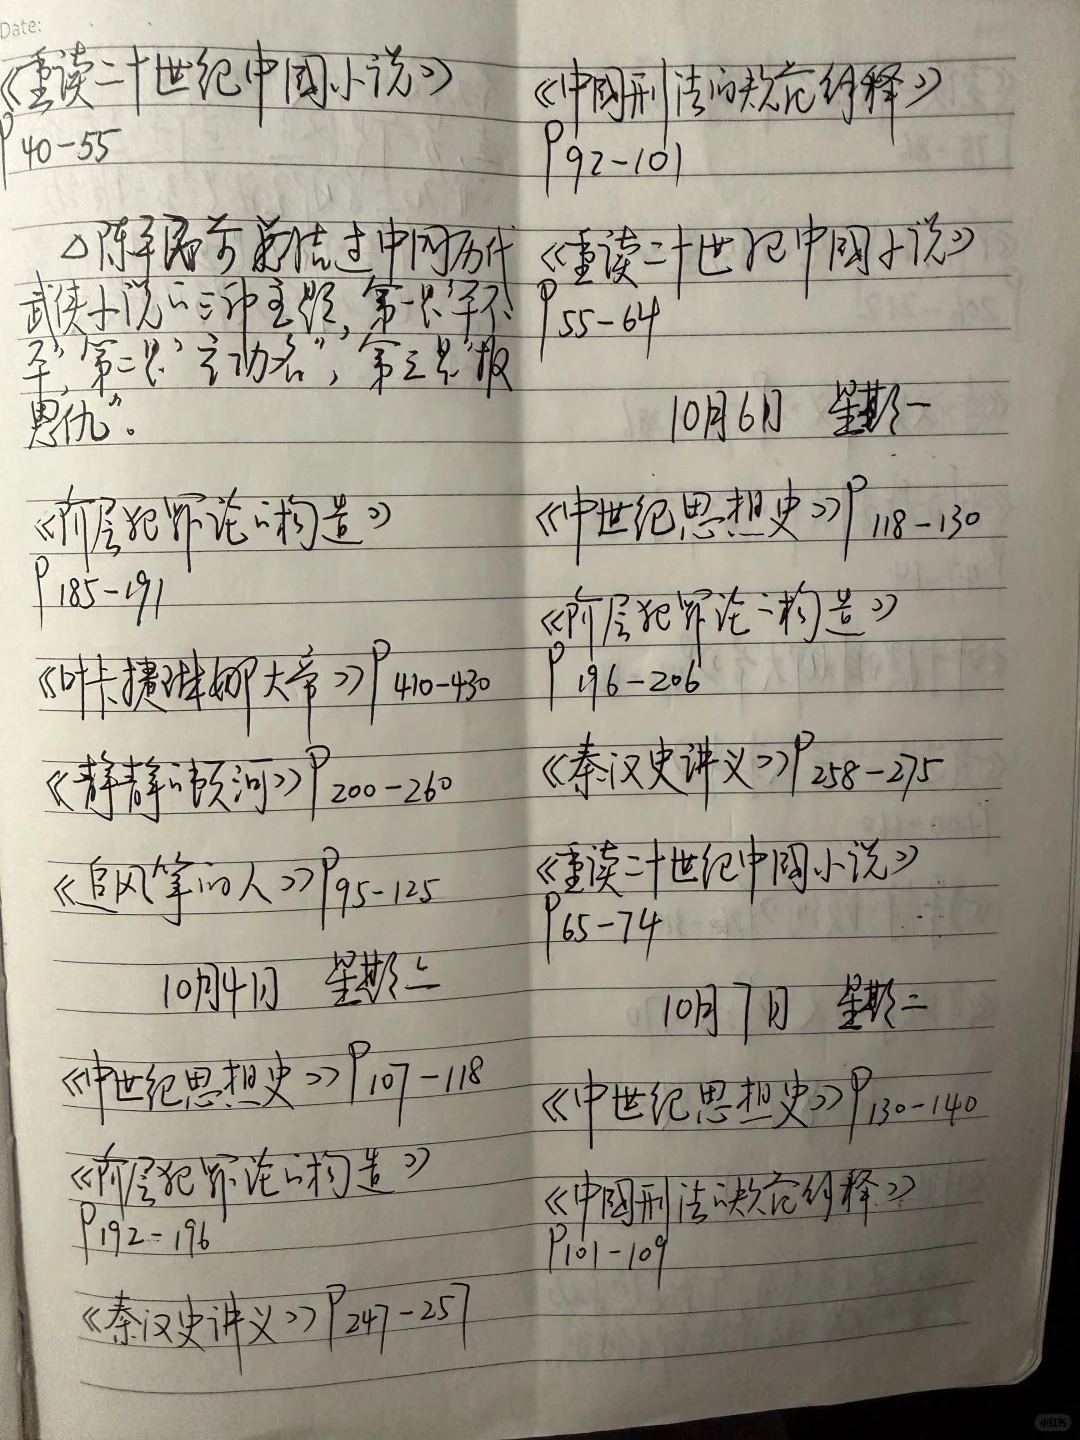 Date:
《重读二十世纪中国小说》
P40-55
△陈平原曾总结过中国历代
武侠小说的三种主题，第一是"平不
平"，第二是"立功名"，第三是"报
恩仇"。
《阶层犯罪论的构造》
P185-191
《叶卡捷琳娜大帝》P410-430
《静静的顿河》P200-260
《追风筝的人》P95-125
10月4日 星期六
《中世纪思想史》P107-118
《阶层犯罪论的构造》
P192-196
《秦汉史讲义》P247-257
《中国刑法的规范诠释》
P92-101
《重读二十世纪中国小说》
P55-64
10月6日 星期一
《中世纪思想史》P118-130
《阶层犯罪论的构造》
P196-206
《秦汉史讲义》P258-275
《重读二十世纪中国小说》
P65-74
10月7日 星期二
《中世纪思想史》P130-140
《中国刑法的规范诠释》
P101-109
小红书